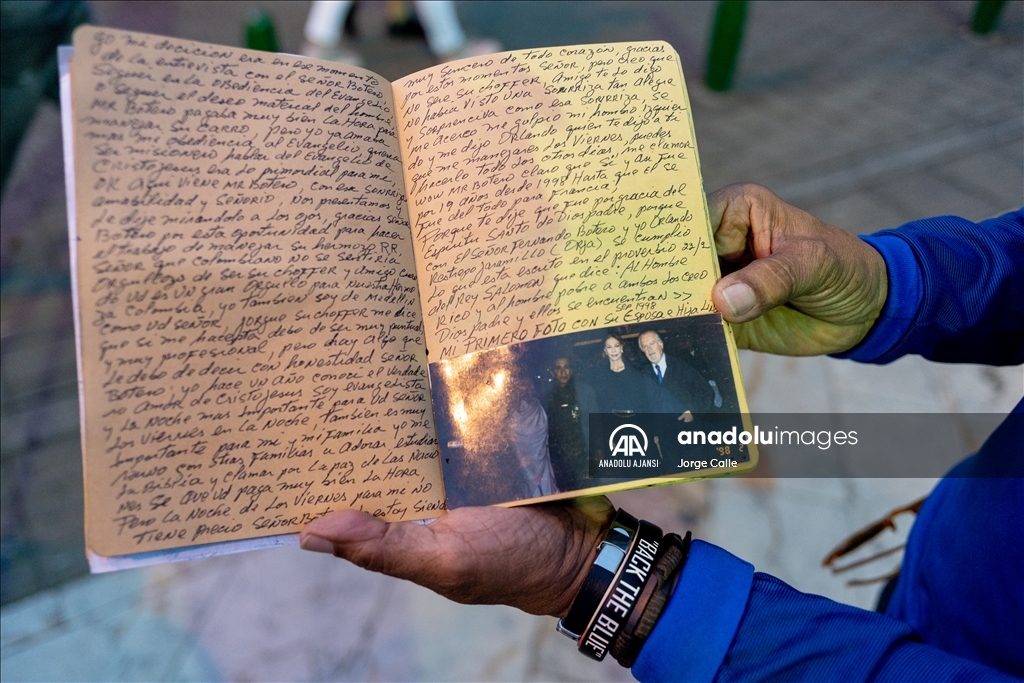 yo mi decicion era en ese momento
de la entrevista con el SEÑOR Botero
seguir en la obediencia del Evangelio
o seguir el deseo material del hombre
MR Botero pagaba muy bien la Hora para
manejar su CARRO, pero yo ya amaba
mas mi obediencia al Evangelio
ser misionero hablar del Evangelio de
CRISTO JESUS era lo primordial para mi
OK Aqui Viene MR Botero, con esa SONRRISA
amabilidad y SEÑORIO, Nos presentamos y
le dije mirandolo a los ojos, gracias SEÑOR
Botero por esta oportunidad para hacer
el trabajo de manejar su hermoso RR
SEÑOR que colombiano NO se SENTIRIA
Orgulloso de ser su choffer y Amigo
de Vd ES UN gran Orgullo para Nuestra
Colombia, yo tambien soy de Medellin
como Vd SEÑOR, porque su choffer me dice
que si me acepta debo de ser muy puntual
y muy profesional, pero hay algo que
le debo de decir con honestidad SEÑOR
Botero: yo hace UN AÑO conoci el Verdade
ro AMOR de CRISTO JESUS soy evangelista
y la Noche mas Importante para Vd SEÑOR
Los Viernes en la Noche, tambien es muy
Importante para mi y mi Familia yo me
con otras Familias a Adorar, estudiar
la Biblia y clamar por la paz de las Nacio
Nes se que Vd paga muy bien La Hora
Pero La Noche de Los Viernes para mi NO
TIENE Precio SEÑOR Bot estoy Siendo
muy sincero de todo corazón, gracias
por estos momentos SEÑOR, pero creo que
NO sere su choffer. Amigo te lo digo
NO habia VISTO UNA SONRRIZA tan alegre
Sorprenciva como esa SONRRIZA, se
me Acerco me golpio mi hombro Izquier
do y me dijo ORLANDO quien te dijo a ti
que me manejares los VIERNES, puedes
hacerlo todo los otros dias,
WOW MR Botero claro que si y Asi Fue
por 19 años desde 1998 Hasta que el se
Fue del todo para Francia,
Porque te dije que Fue por gracia del
Espiritu SANTO de Dios padre, porque
con El SEÑOR Fernando Botero y yo Orlando
Restrepo Jaramillo (ORJA) se cumplio
Lo que esta escrito en el proverbio 22/2
del Rey SALOMON que dice: Al Hombre
RICO y al hombre pobre a ambos los creo
Dios padre y ellos se encuentran >>
SEP 1998
MI PRIMERO FOTO CON SU ESPOSA e Hija
98
AA
ANADOLU AJANSI
anadoluimages
Jorge Calle
"BACK THE BLUE"